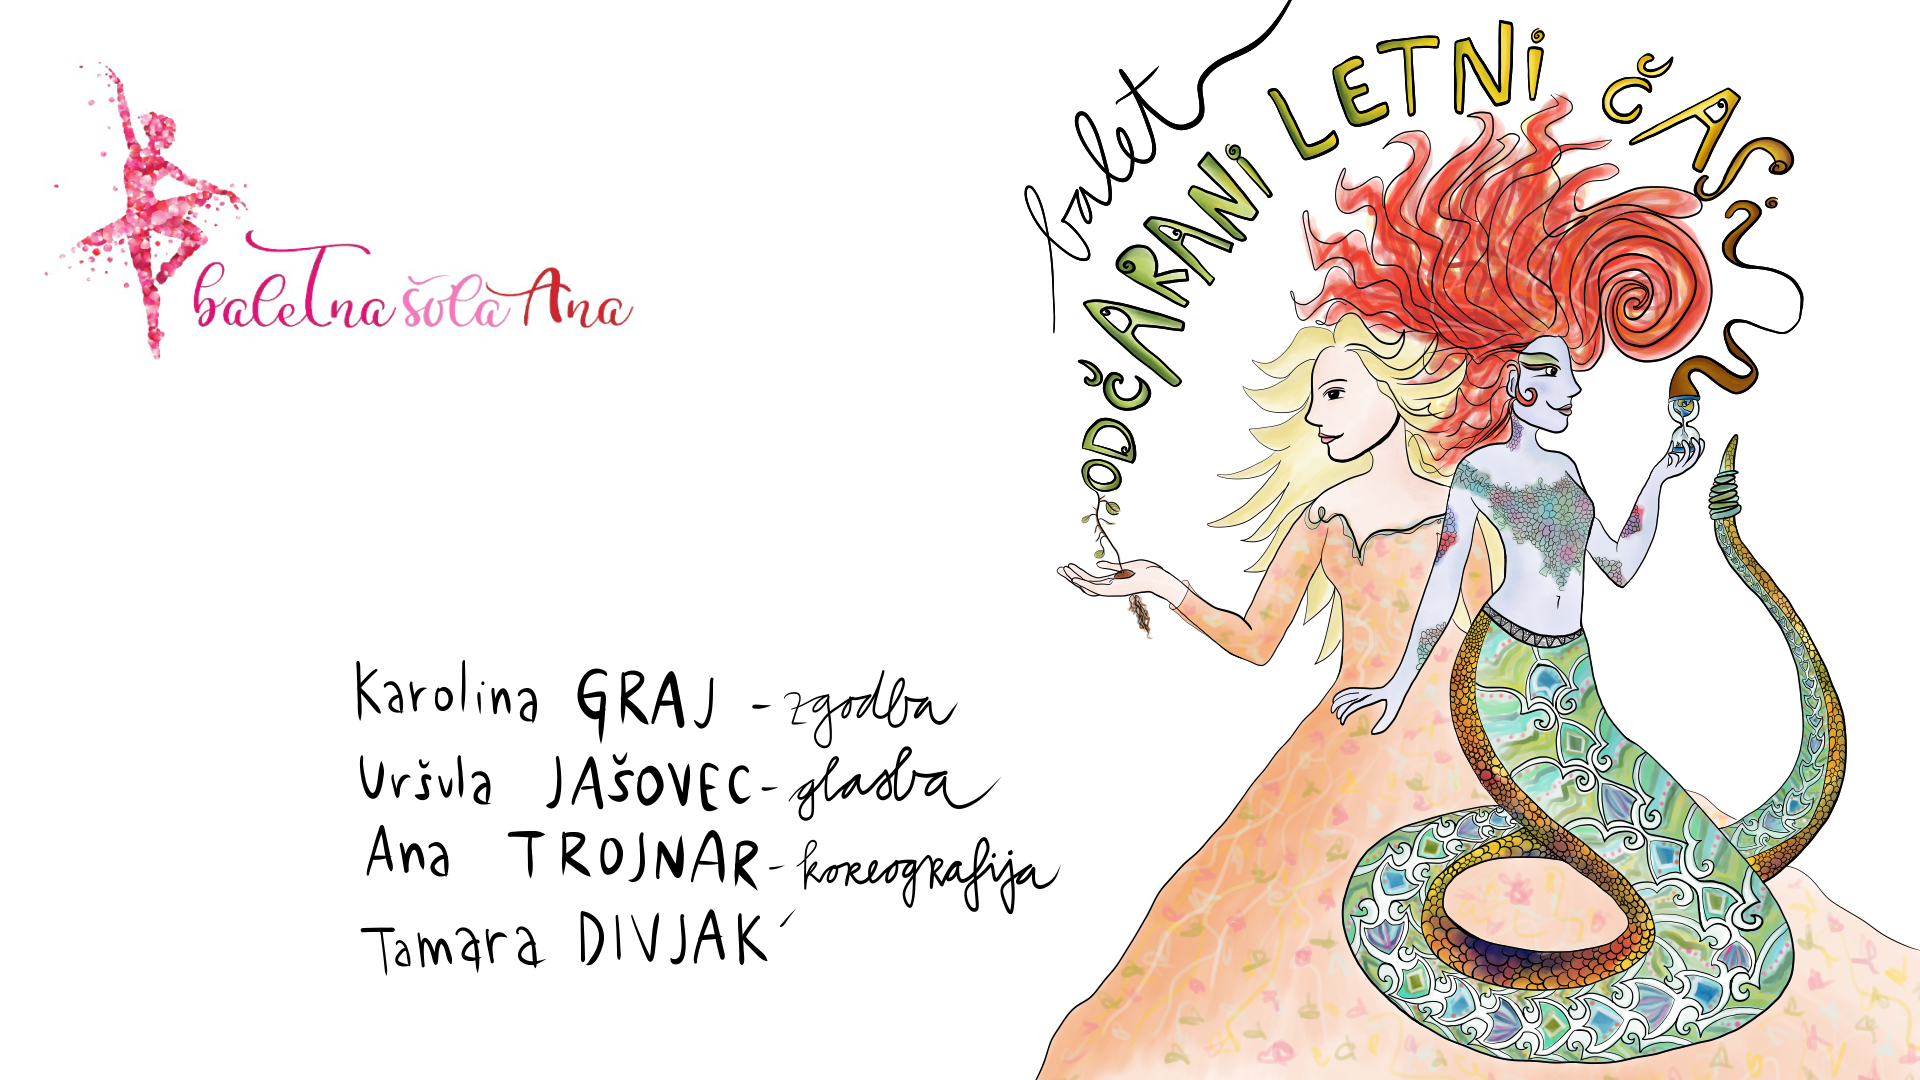 baletna šola Ana
balet
ODČARANI LETNI ČASI
Karolina GRAJ - zgodba
Uršula JAŠOVEC - glasba
Ana TROJNAR - koreografija
Tamara DIVJAK